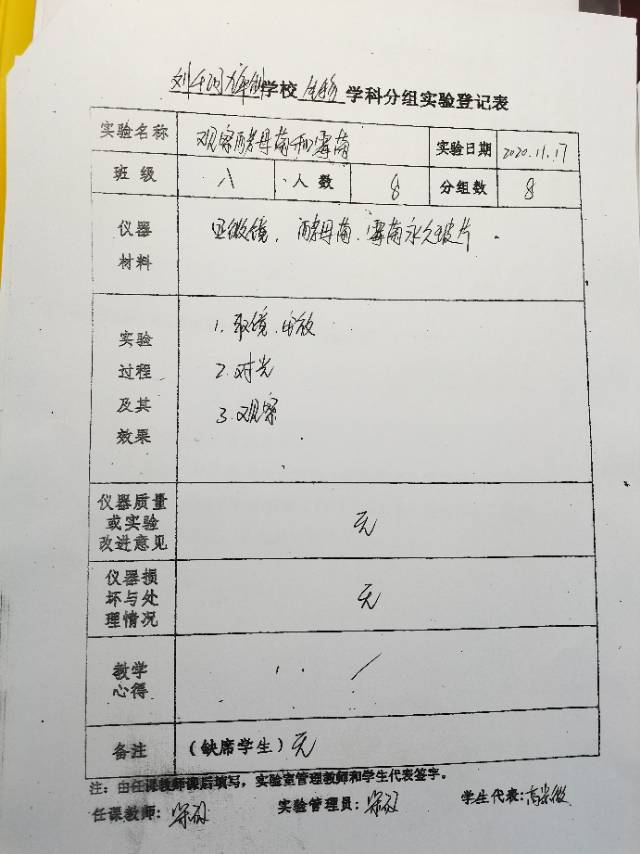 学校 生物 学科分组实验登记表
实验名称 观察酵母菌和霉菌 实验日期 2020.11.17
班 级 八 人 数 8 分组数 8
仪器 材料 显微镜、酵母菌、霉菌永久玻片.
实验 过程 及其 效果
1. 取镜、安放
2. 对光
3. 观察
仪器质量 或实验 改进意见 无
仪器损 坏与处 理情况 无
教学 心得 /
备注 (缺席学生) 无
注:由任课教师课后填写,实验室管理教师和学生代表签字。
任课教师: 实验管理员: 学生代表: